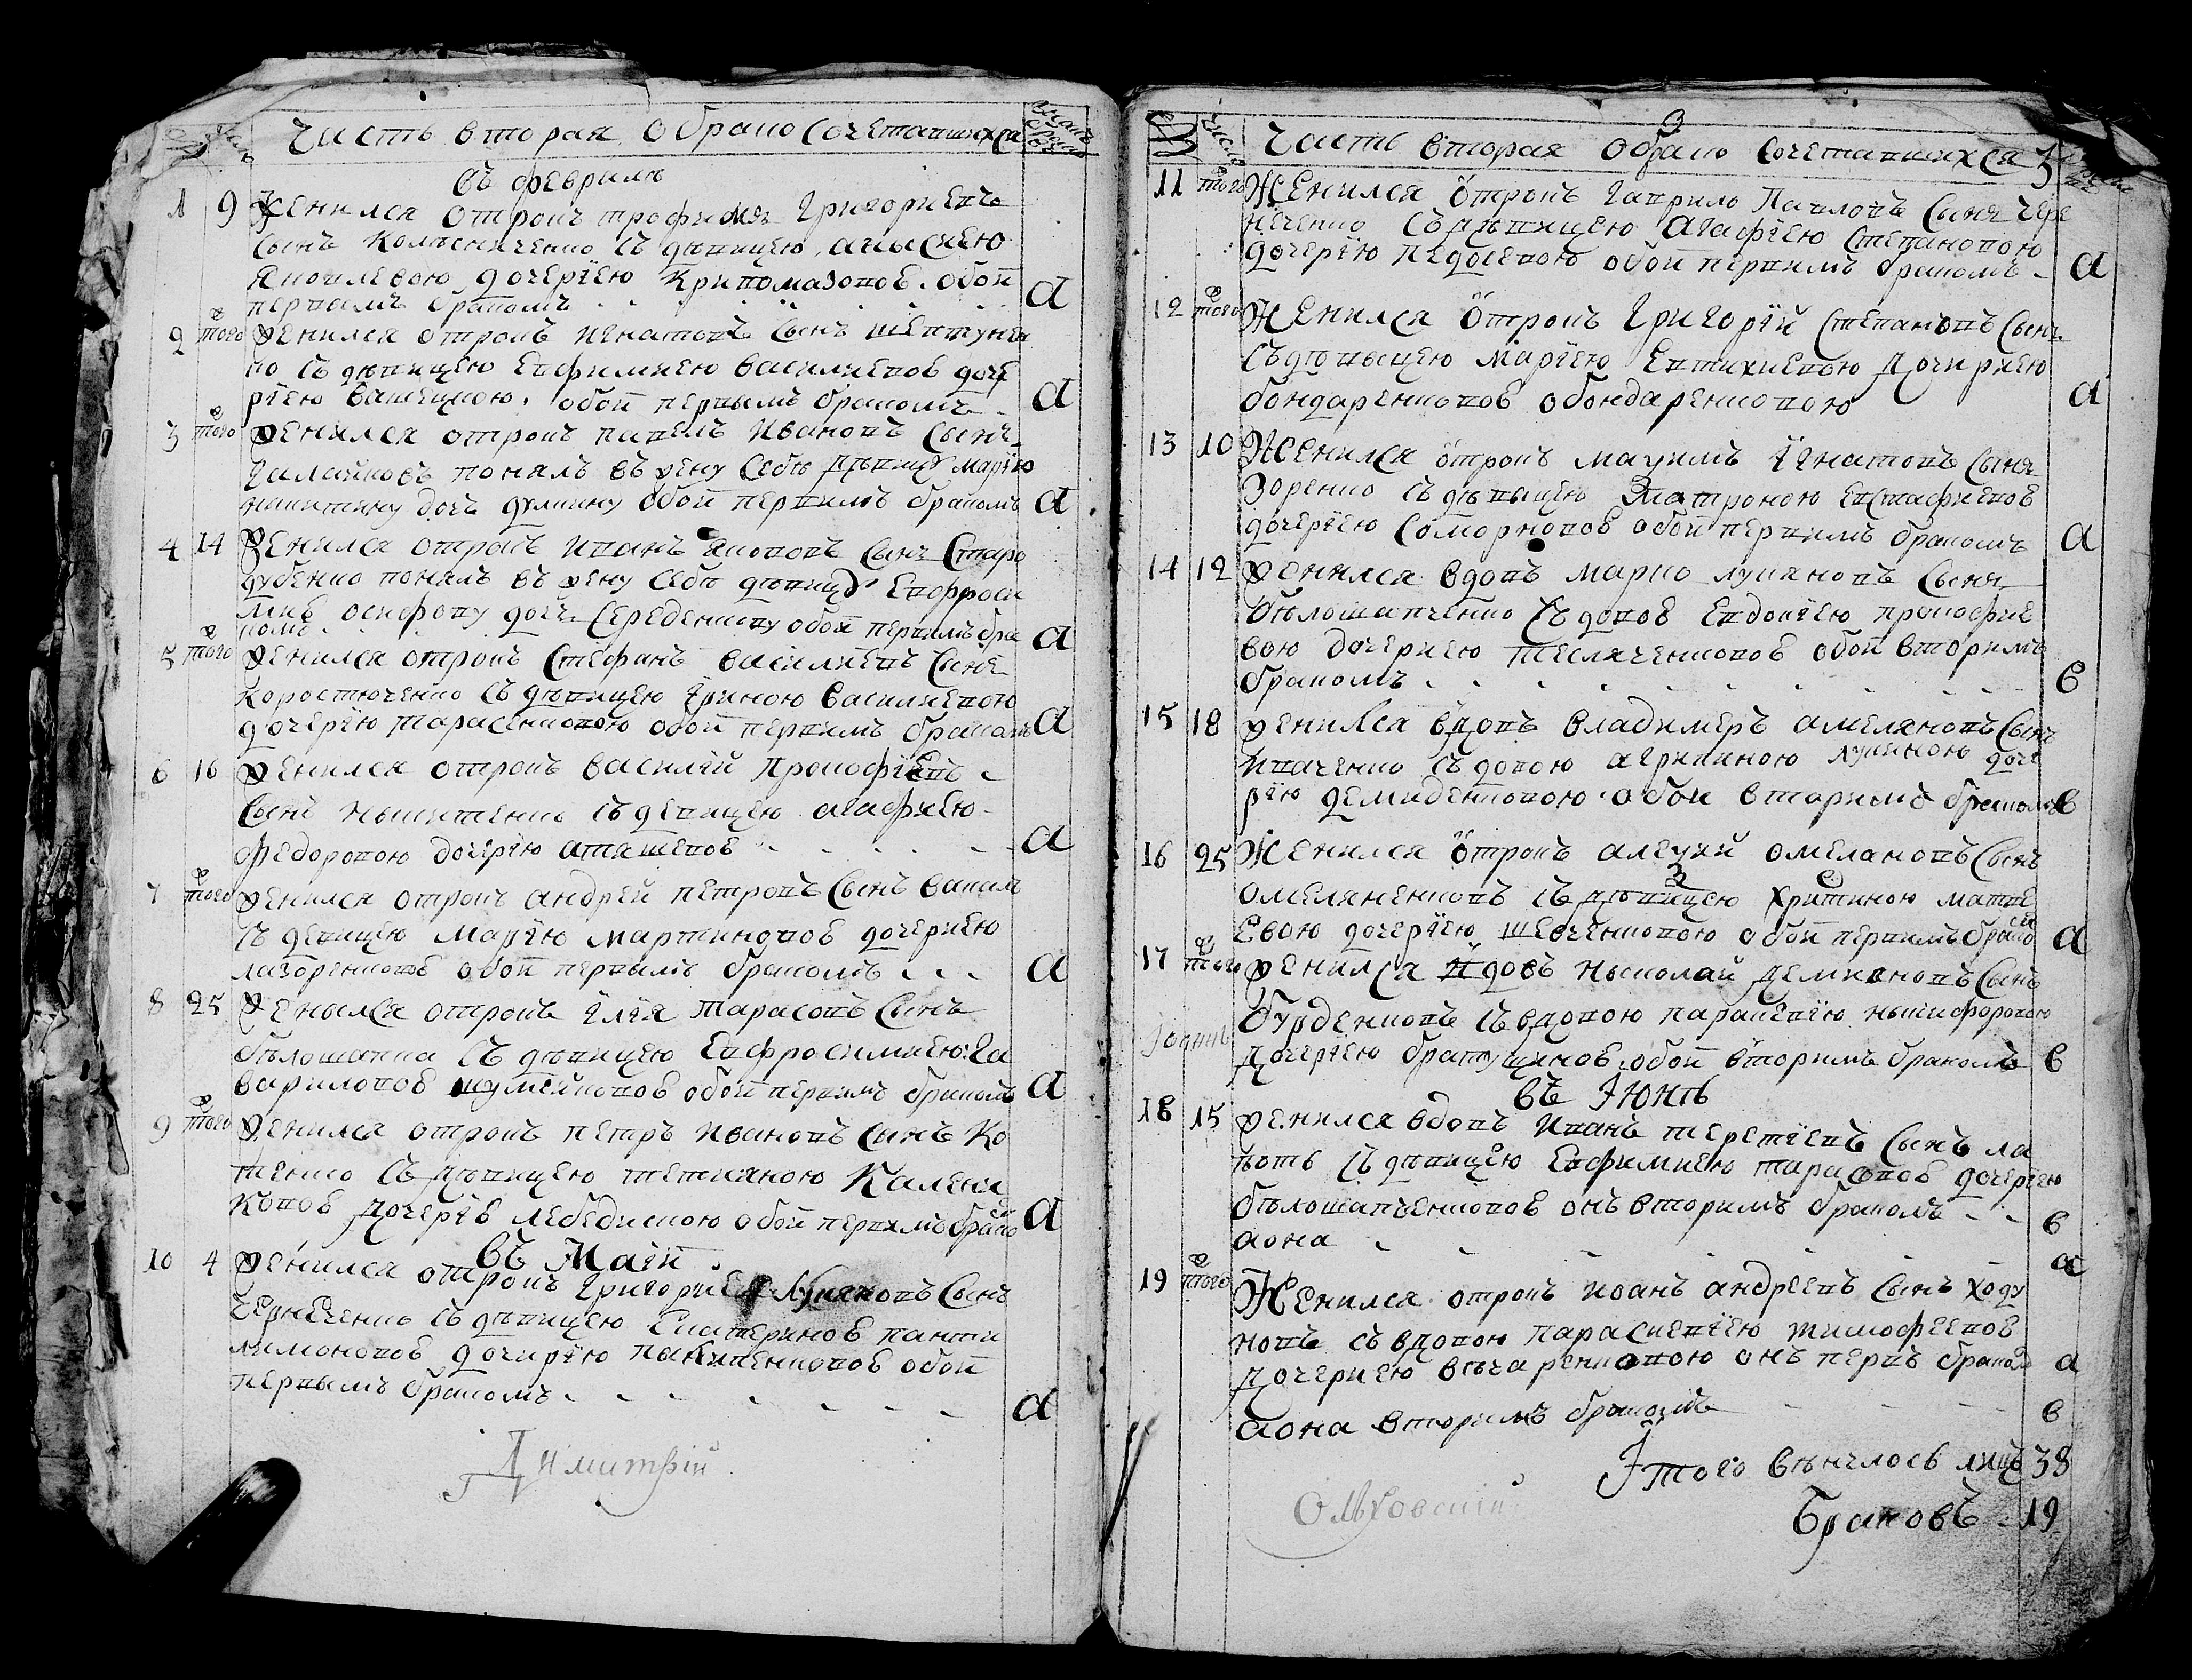 Часть вторая о брако сочетавшихся
въ февриля
1 9 Женился отрокъ трофимъ Григориевъ
сынъ Колесниченко съ дѣвицею анысиею
Яковлевою дочериею Кривомазовоѣ обои
первымъ бракомъ а
2 того женился отрокъ Игнатовъ сынъ шептунен
ко съ дѣвицею Евфимиею Василиевоѣ доче
риею обои первымъ бракомъ а
3 того женился отрокъ павелъ Ивановъ сынъ
Галайковъ понялъ въ жену себѣ дѣвицу марію
никитину дочъ думину обои первимъ бракомъ а
4 14 Женился отрокъ Иванъ якововъ сынъ Старо
дубенко понялъ въ жену себѣ дѣвицу Евфроси
миѣ осифову дочъ середенкову обои первимъ бра
комъ а
5 того женился отрокъ Стефанъ василиевъ сынъ
коростюченко съ дѣвицею Ѣриною Василиевою
дочерїю тарасенковою обои первимъ бракомъ а
6 16 женился отрокъ василий Прокофїевъ
сынъ никитенко съ девицею агафиею
федоровою дочерїю аташевоѣ а
7 того женился отрокъ андрей петровъ сынъ
съ девицею Марїю мартиновоѣ дочериею
лазоренковоѣ обои первимъ бракомъ а
8 25 женылся отрокъ Їлїя тарасовъ сынъ
бѣлошапка съ дѣвицею Евфросимиею Га
вариловоѣ шумейковоѣ обои первимъ бракомъ а
9 того женился отрокъ петръ Ивановъ сынъ Ко
тенко съ дѣвицею тетяною Калени
ковоѣ дочерїѣ лебедискою обои первимъ брако а
въ Маїи
10 4 женился отрокъ Григорией Лукяновъ сынъ
Чернеченко съ дѣвицею Екатериноѣ панти
лимоновоѣ дочирїю обои
первымъ бракомъ а
Димитрій
Число Часть вторая о брако сочетавшихся 3
11 того Женился отрокъ Гаврило Павловъ сынъ Чере
нченко съ дѣвицею Агафїею степановою
дочерїю обои первимъ бракомъ а
12 того Женился отрокъ Григорїй степановъ сынъ
съ дѣвыцею Марїею Евтихиевою дочириею
бондаренковоѣ обондаренковою а
13 10 Женился отрокъ мауимъ Їгнатовъ сынъ
Зоренко съ дѣвыцею Матроною Евстафиевоѣ
дочерїею соморковоѣ обои первимъ бракомъ а
14 12 женился вдовъ марко лукяновъ сынъ
бѣлошапченко съ вдовоѣ Евдокїею прокофие
вою дочериею тесляченковоѣ обои вторимъ
бракомъ в
15 18 женился вдовъ владимеръ амеляновъ сынъ
Иваченко съ вдовою агрипиною лукиною доче
рїю демиденковою обои вторимъ бракомъ в
16 25 Женился отрокъ алеуий омеляновъ сынъ
омеляненковъ съ дѣвицею Христиною матве
евою дочерїею шевченковою обои первимъ брако а
17 того женился вдовъ ныколай демяновъ сынъ
бурденковъ съ вдовою параскевїю никифоровою
дочерїею братущиноѣ обои вторимъ бракомъ в
Їоаннъ
въ Їюнѣ
18 15 женился вдовъ Иванъ теретїевъ сынъ ла
поть съ дѣвицею Евфимиею тарасовоѣ дочерїею
бѣлошапченковоѣ онъ вторимъ бракомъ в
аона а
19 того Женился отрокъ иванъ андреевъ сынъ ходу
новъ съ вдовою параскевїею тимофеевоѣ
дочериею овъчаренковою онъ первъ бракомъ а
аона вторимъ бракомъ в
Їтого вѣнчлось лицъ 38
Браковъ 19
Ольховскій